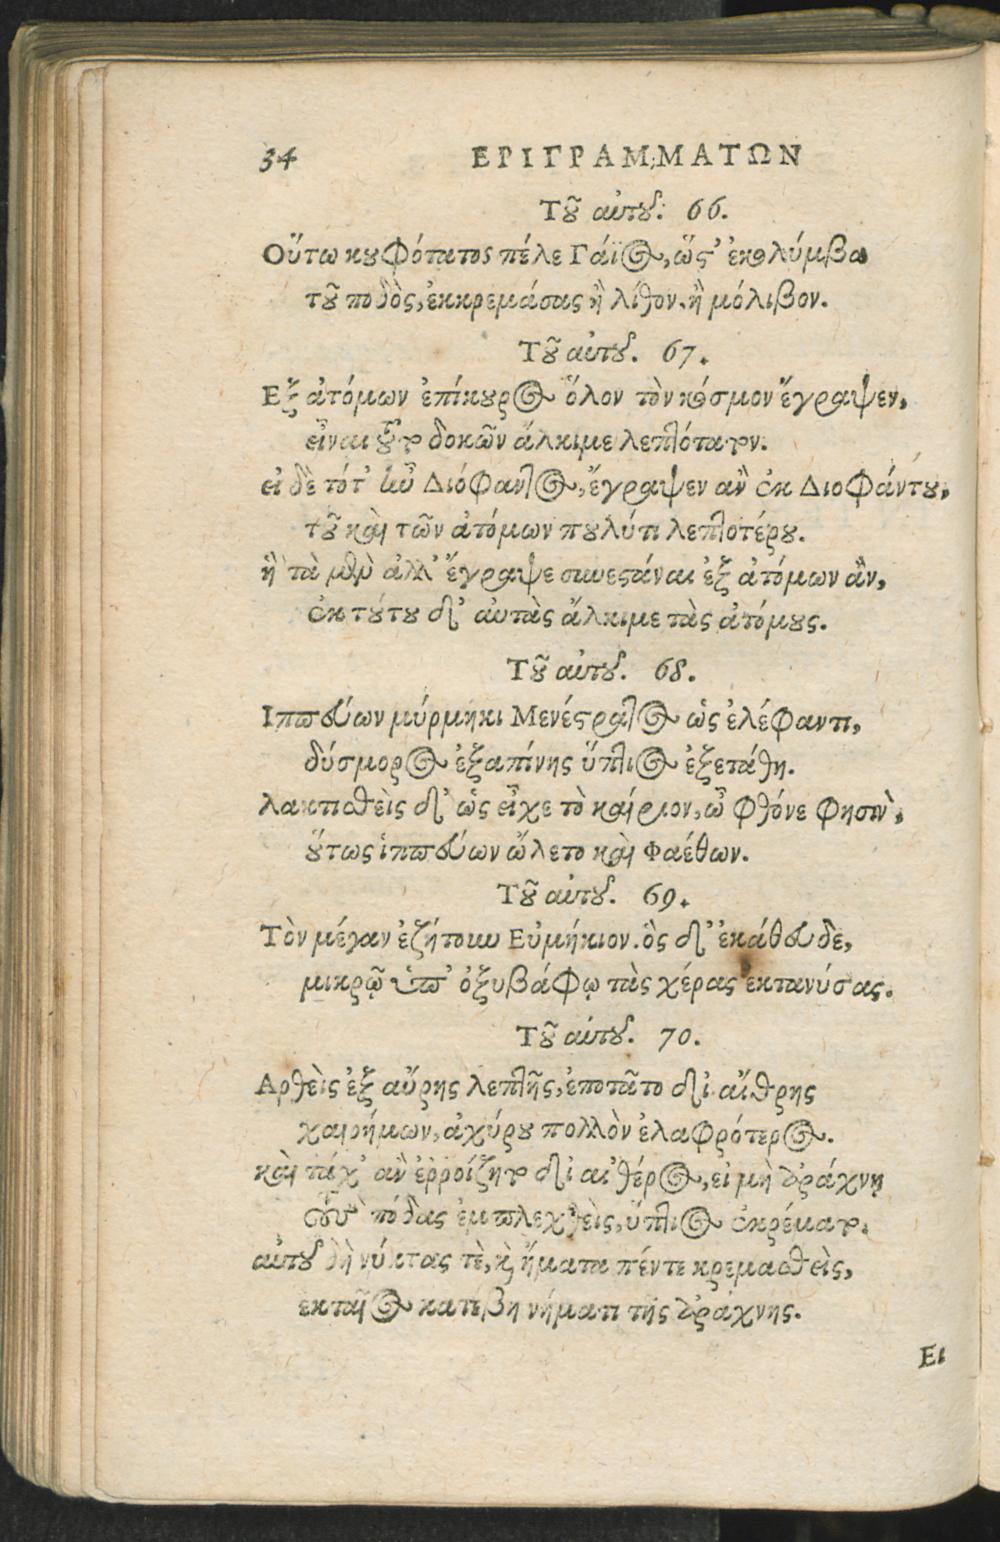 34 ΕΡΙΓΡΑΜΜΑΤΩΝ
Τοῦ αὐτοῦ. 66.
Οὕτω κουφότατος πέλε Γάϊος, ὥστ' ἐκολύμβα
τοῦ ποδὸς, ἐκκρεμάσας ἢ λίθον, ἢ μόλιβον.
Τοῦ αὐτοῦ. 67.
Εξ ἀτόμων ἐπίκουρος ὅλον τὸν κόσμον ἔγραψεν,
εἶναι τοῦτο δοκῶν ἄλκιμε λεπτότατον.
εἰ δὲ τότ' ἦν Διόφαντος, ἔγραψεν ἂν ἐκ Διοφάντου,
τοῦ καὶ τῶν ἀτόμων πουλύτι λεπτοτέρου.
ἢ τὰ μὲν ἄλλ' ἔγραψε συνεστάναι ἐξ ἀτόμων ἂν,
ἐκ τούτου δ' αὐτὰς ἄλκιμε τὰς ἀτόμους.
Τοῦ αὐτοῦ. 68.
Ιππεύων μύρμηκι Μενέστρατος ὡς ἐλέφαντι,
δύσμορος ἐξαπίνης ὕπτιος ἐξετάθη.
λακτισθεὶς δ' ὡς εἶχε τὸ καίριον, ὦ φθόνε φησὶν,
οὕτως ἱππεύων ὤλετο καὶ Φαέθων.
Τοῦ αὐτοῦ. 69.
Τὸν μέγαν ἐζήτουν Εὐμήκιον. ὃς δ' ἐκάθευδε,
μικρῷ ὑπ' ὀξυβάφῳ τὰς χέρας ἐκτανύσας.
Τοῦ αὐτοῦ. 70.
Αρθεὶς ἐξ αὔρης λεπτῆς, ἐποτᾶτο δι' αἴθρης
χαιρήμων, ἀχύρου πολλὸν ἐλαφρότερος.
καὶ τάχ' ἂν ἐρροίζητο δι' αἰθέρος, εἰ μὴ ἀράχνῃ
τοὺς πόδας ἐμπλεχθεὶς, ὕπτιος ἐκρέματο.
αὐτοῦ δὴ νύκτας τὲ, καὶ ἤματα πέντε κρεμασθεὶς,
ἑκταῖος κατέβη νήματι τῆς ἀράχνης.
Ει